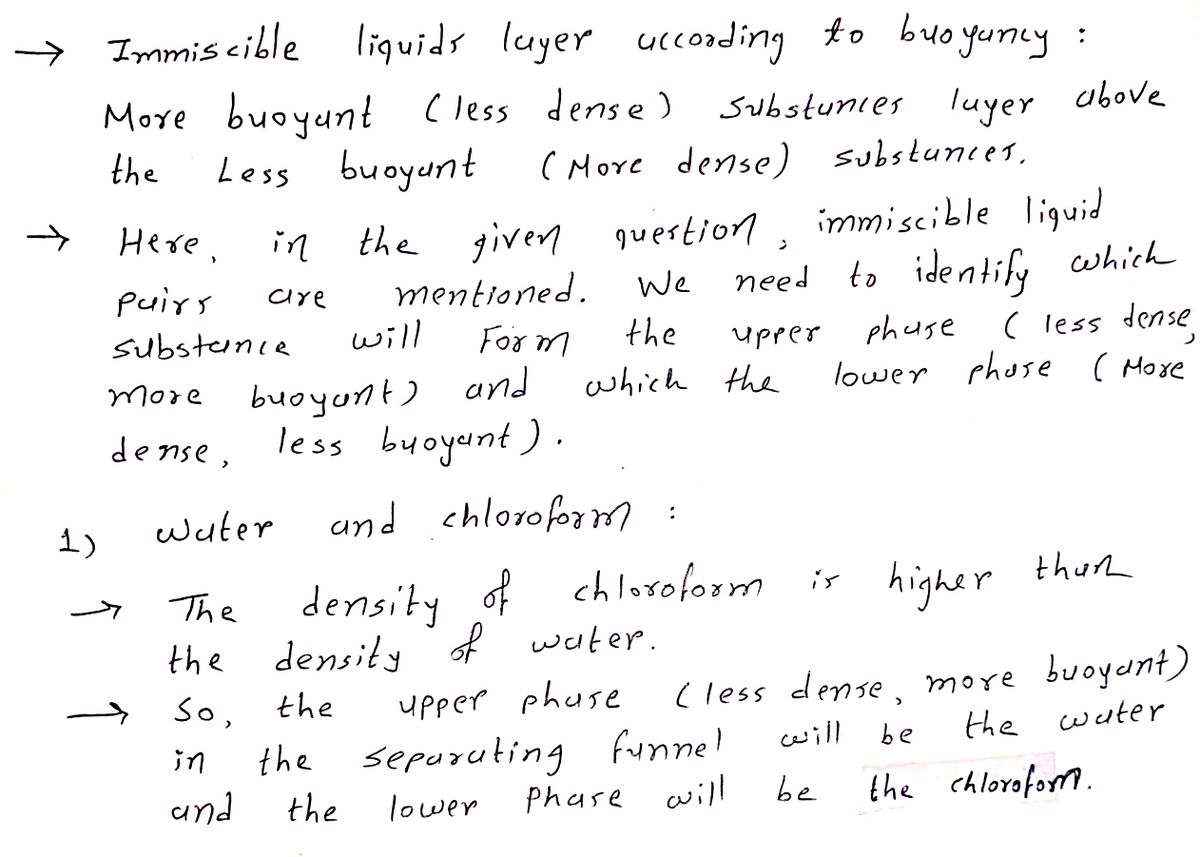 → Immiscible liquids layer according to buoyancy :
More buoyant (less dense) substances layer above
the Less buoyant (More dense) substances.
→ Here, in the given question, immiscible liquid
pairs are mentioned. We need to identify which
substance will Form the upper phase (less dense,
more buoyant) and which the lower phase (More
dense, less buoyant).
1) Water and chloroform :
→ The density of chloroform is higher than
the density of water.
→ So, the upper phase (less dense, more buoyant)
in the separating funnel will be the water
and the lower Phase will be the chlorofom.